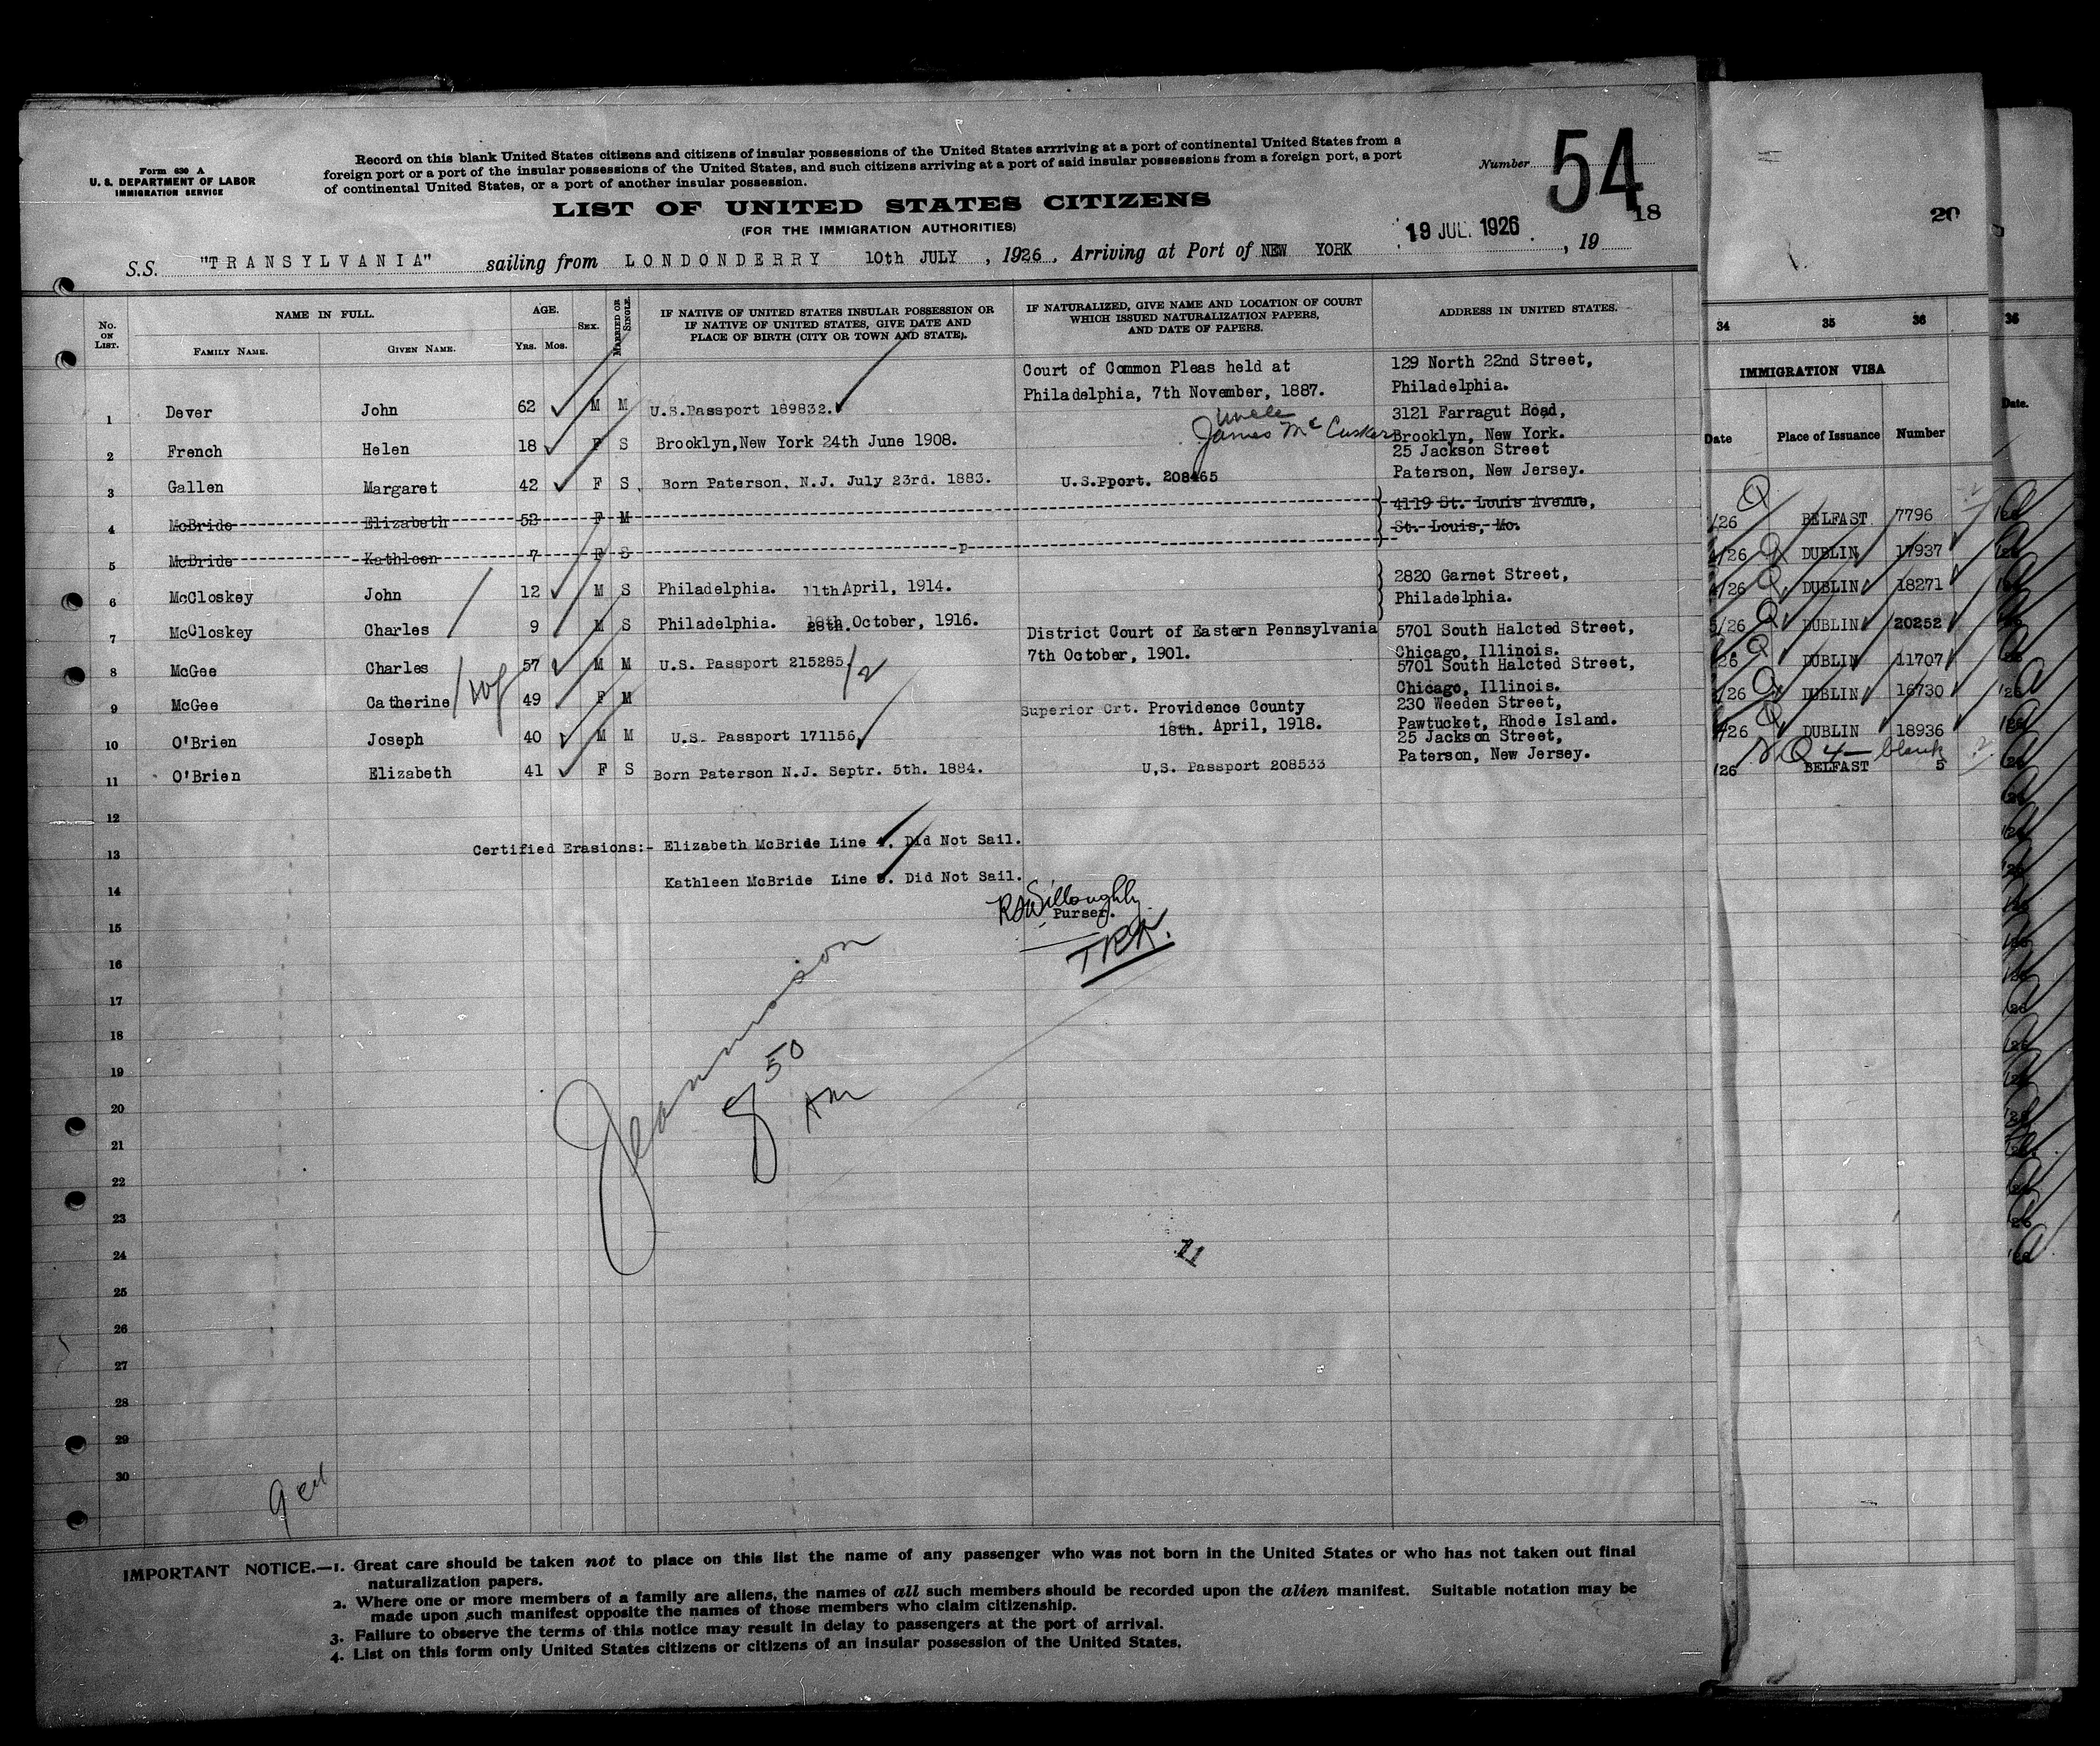 Form 630 A
U. S. DEPARTMENT OF LABOR
IMMIGRATION SERVICE
Record on this blank United States citizens and citizens of insular possessions of the United States arrriving at a port of continental United States from a
foreign port or a port of the insular possessions of the United States, and such citizens arriving at a port of said insular possessions from a foreign port, a port
of continental United States, or a port of another insular possession.
Number 54
18
LIST OF UNITED STATES CITIZENS
(FOR THE IMMIGRATION AUTHORITIES)
19 JUL. 1926
S.S. "TRANSYLVANIA" sailing from LONDONDERRY 10th JULY, 1926, Arriving at Port of NEW YORK , 19
No. ON LIST.
NAME IN FULL.
FAMILY NAME. GIVEN NAME.
AGE.
Yrs. Mos.
SEX.
MARRIED OR SINGLE.
IF NATIVE OF UNITED STATES INSULAR POSSESSION OR
IF NATIVE OF UNITED STATES, GIVE DATE AND
PLACE OF BIRTH (CITY OR TOWN AND STATE).
IF NATURALIZED, GIVE NAME AND LOCATION OF COURT
WHICH ISSUED NATURALIZATION PAPERS,
AND DATE OF PAPERS.
ADDRESS IN UNITED STATES.
Court of Common Pleas held at 129 North 22nd Street,
Philadelphia, 7th November, 1887. Philadelphia.
1 Dever John 62 M M U.S.Passport 189832.
Uncle 3121 Farragut Road,
James McCusker Brooklyn, New York.
2 French Helen 18 F S Brooklyn,New York 24th June 1908.
25 Jackson Street
Paterson, New Jersey.
3 Gallen Margaret 42 F S Born Paterson, N.J. July 23rd. 1883. U.S.Pport. 208465
4 McBride Elizabeth 52 F M 4119 St. Louis Avenue,
St. Louis, Mo.
5 McBride Kathleen 7 F S
6 McCloskey John 12 M S Philadelphia. 11th April, 1914. 2820 Garnet Street,
Philadelphia.
7 McCloskey Charles 9 M S Philadelphia. October, 1916.
District Court of Eastern Pennsylvania 5701 South Halcted Street,
7th October, 1901. Chicago, Illinois.
8 McGee Charles 57 M M U.S. Passport 215285
5701 South Halcted Street,
Chicago, Illinois.
9 McGee Catherine 49 F M
Superior Crt. Providence County 230 Weeden Street,
18th. April, 1918. Pawtucket, Rhode Island.
10 O'Brien Joseph 40 M M U.S. Passport 171156
25 Jackson Street,
Paterson, New Jersey.
11 O'Brien Elizabeth 41 F S Born Paterson N.J. Septr. 5th. 1884. U.S. Passport 208533
12
13 Certified Erasions:- Elizabeth McBride Line 4. Did Not Sail.
14 Kathleen McBride Line 5. Did Not Sail.
R Willoughby
15 Purser.
16
17
18
19
20
21
22
23
24
25
26
27
28
29
30
8 50 AM
11
IMPORTANT NOTICE.—1. Great care should be taken not to place on this list the name of any passenger who was not born in the United States or who has not taken out final
naturalization papers.
2. Where one or more members of a family are aliens, the names of all such members should be recorded upon the alien manifest. Suitable notation may be
made upon such manifest opposite the names of those members who claim citizenship.
3. Failure to observe the terms of this notice may result in delay to passengers at the port of arrival.
4. List on this form only United States citizens or citizens of an insular possession of the United States.
20
34 35 36
IMMIGRATION VISA
Date Place of Issuance Number
/26 BELFAST 7796
/26 DUBLIN 17937
/26 DUBLIN 18271
5/26 DUBLIN 20252
26 DUBLIN 11707
/26 DUBLIN 16730
/26 DUBLIN 18936
blank
/26 BELFAST 5
36
Date.